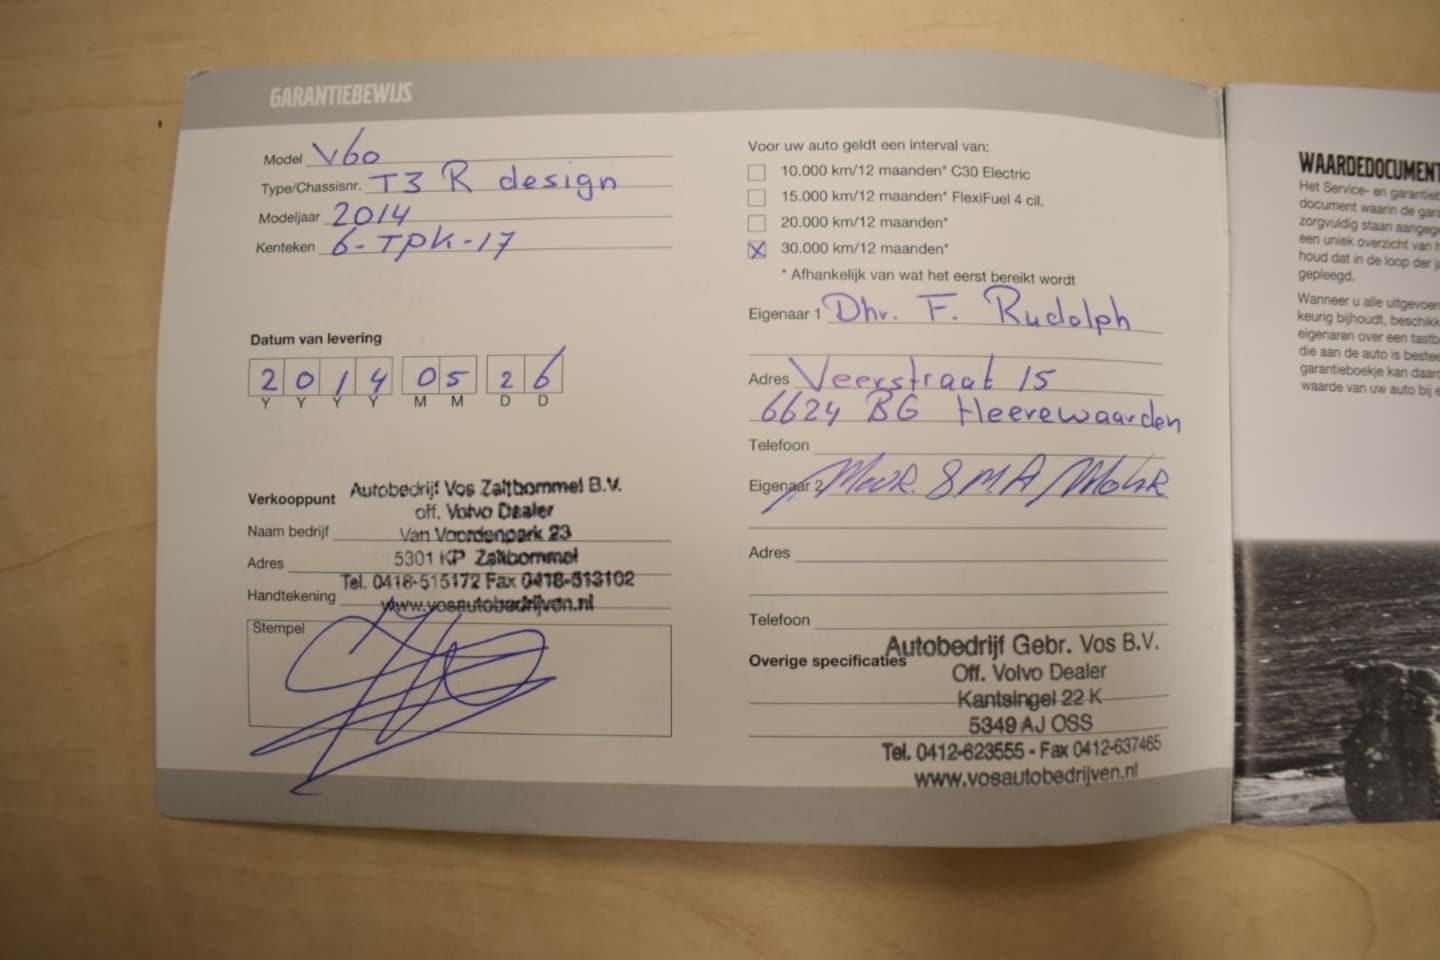 GARANTIEBEWIJS
Model V60
Type/Chassisnr. T3 R design
Modeljaar 2014
Kenteken 6-TPK-17
Datum van levering
2 0 1 4 0 5 2 6
Y Y Y Y M M D D
Verkooppunt
Autobedrijf Vos Zaltbommel B.V.
off. Volvo Dealer
Naam bedrijf
Van Voordenpark 23
Adres
5301 KP Zaltbommel
Tel. 0418-515172 Fax 0418-513102
Handtekening
www.vosautobedrijven.nl
Stempel
Voor uw auto geldt een interval van:
10.000 km/12 maanden* C30 Electric
15.000 km/12 maanden* FlexiFuel 4 cil.
20.000 km/12 maanden*
30.000 km/12 maanden*
* Afhankelijk van wat het eerst bereikt wordt
Eigenaar 1 Dhr. F. Rudolph
Adres Veerstraat 15
6624 BG Heerewaarden
Telefoon
Eigenaar 2
Adres
Telefoon
Overige specificaties
Autobedrijf Gebr. Vos B.V.
Off. Volvo Dealer
Kantsingel 22 K
5349 AJ OSS
Tel. 0412-623555 - Fax 0412-637465
www.vosautobedrijven.nl
WAARDEDOCUMENT
Het Service- en garantieb
document waarin de gara
zorgvuldig staan aangege
een uniek overzicht van h
houd dat in de loop der j
gepleegd.
Wanneer u alle uitgevoer
keurig bijhoudt, beschikk
eigenaren over een tastb
die aan de auto is bestee
garantieboekje kan daard
waarde van uw auto bij e